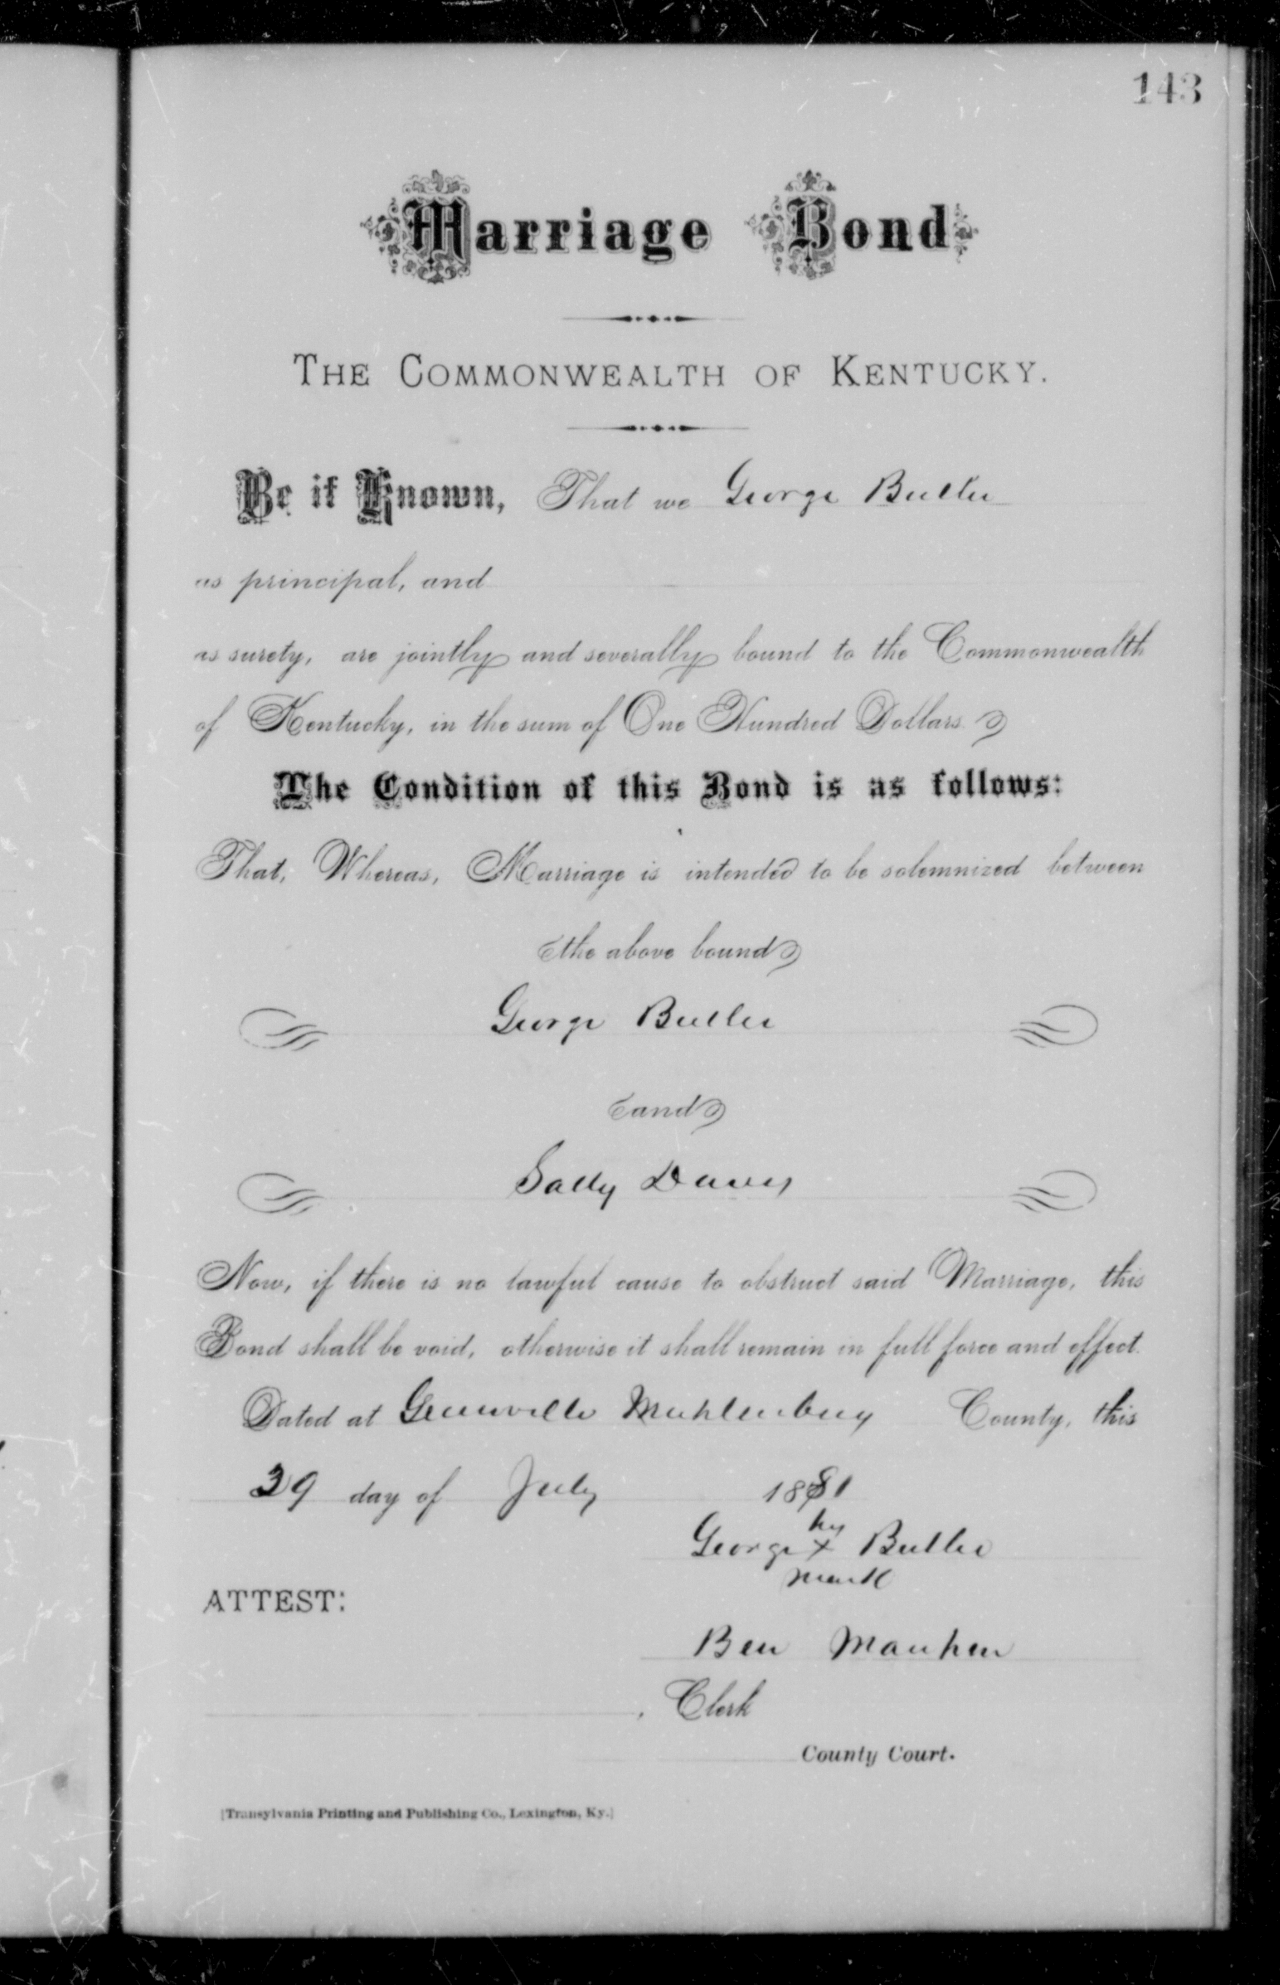 143
Marriage Bond
THE COMMONWEALTH OF KENTUCKY.
Be it Known, That we George Butler
as principal, and
as surety, are jointly and severally bound to the Commonwealth
of Kentucky, in the sum of One Hundred Dollars.
The Condition of this Bond is as follows:
That, Whereas, Marriage is intended to be solemnized between
the above bound
George Butler
and
Sally
Now, if there is no lawful cause to obstruct said Marriage, this
Bond shall be void, otherwise it shall remain in full force and effect.
Dated at Greenville Muhlenburg County, this
29 day of July 1881
his
George x Butler
mark
ATTEST:
Ben
, Clerk
County Court.
[Transylvania Printing and Publishing Co., Lexington, Ky.]